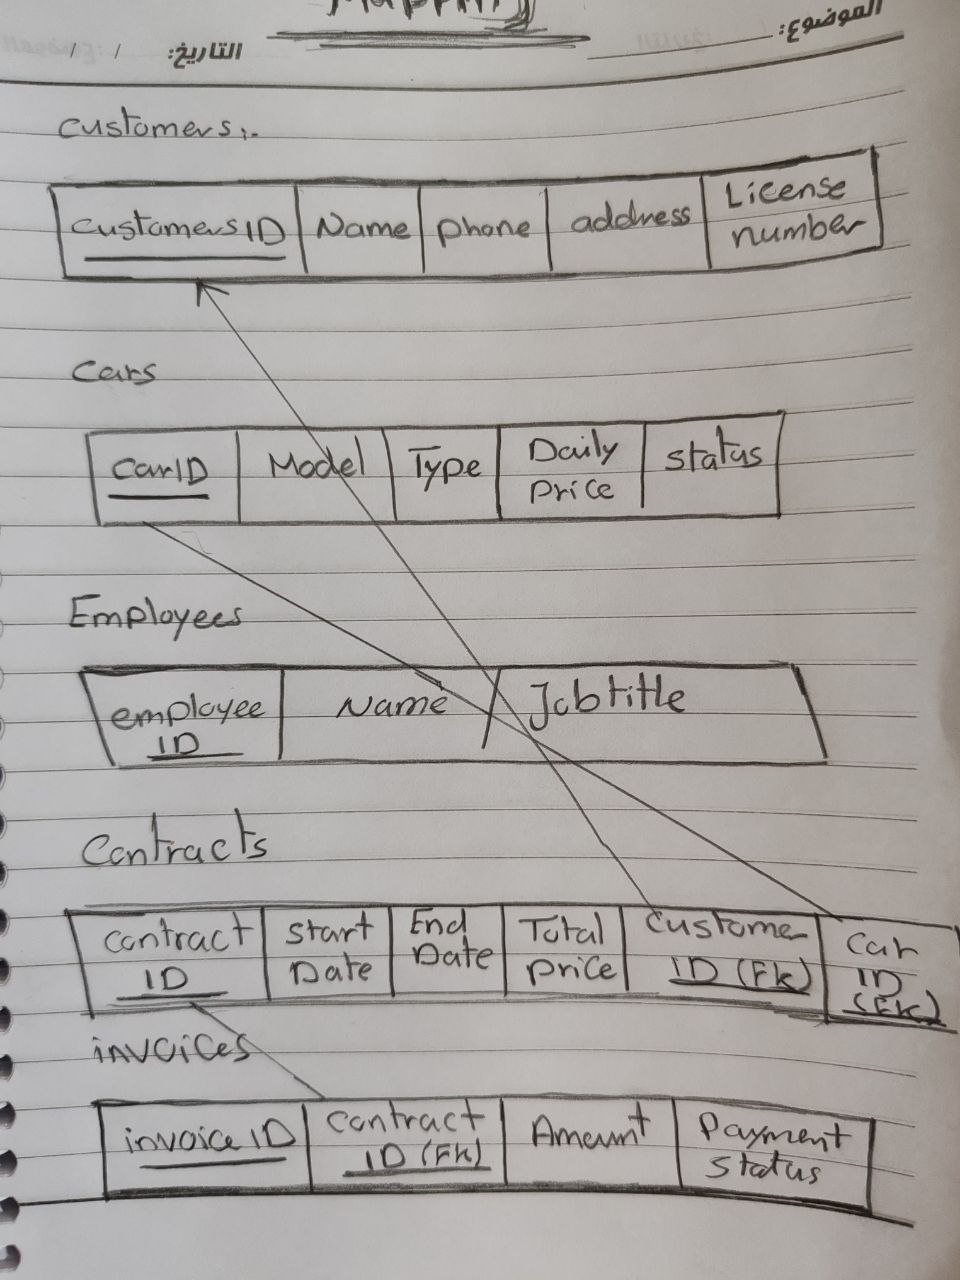 Mapping
الموضوع:
التاريخ: / /
Customers:-
CustomersID Name phone address License number
Cars
CarID Model Type Daily Price status
Employees
employee ID Name Job title
Contracts
contract ID Start Date End Date Total price Custome ID (Fk) Car ID (Fk)
invoices
invoice ID Contract ID (Fk) Amount Payment status